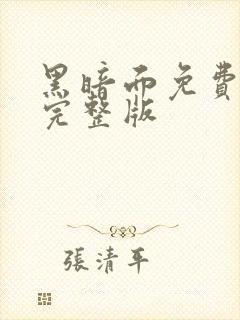 黑暗而免費
完整版
張清平